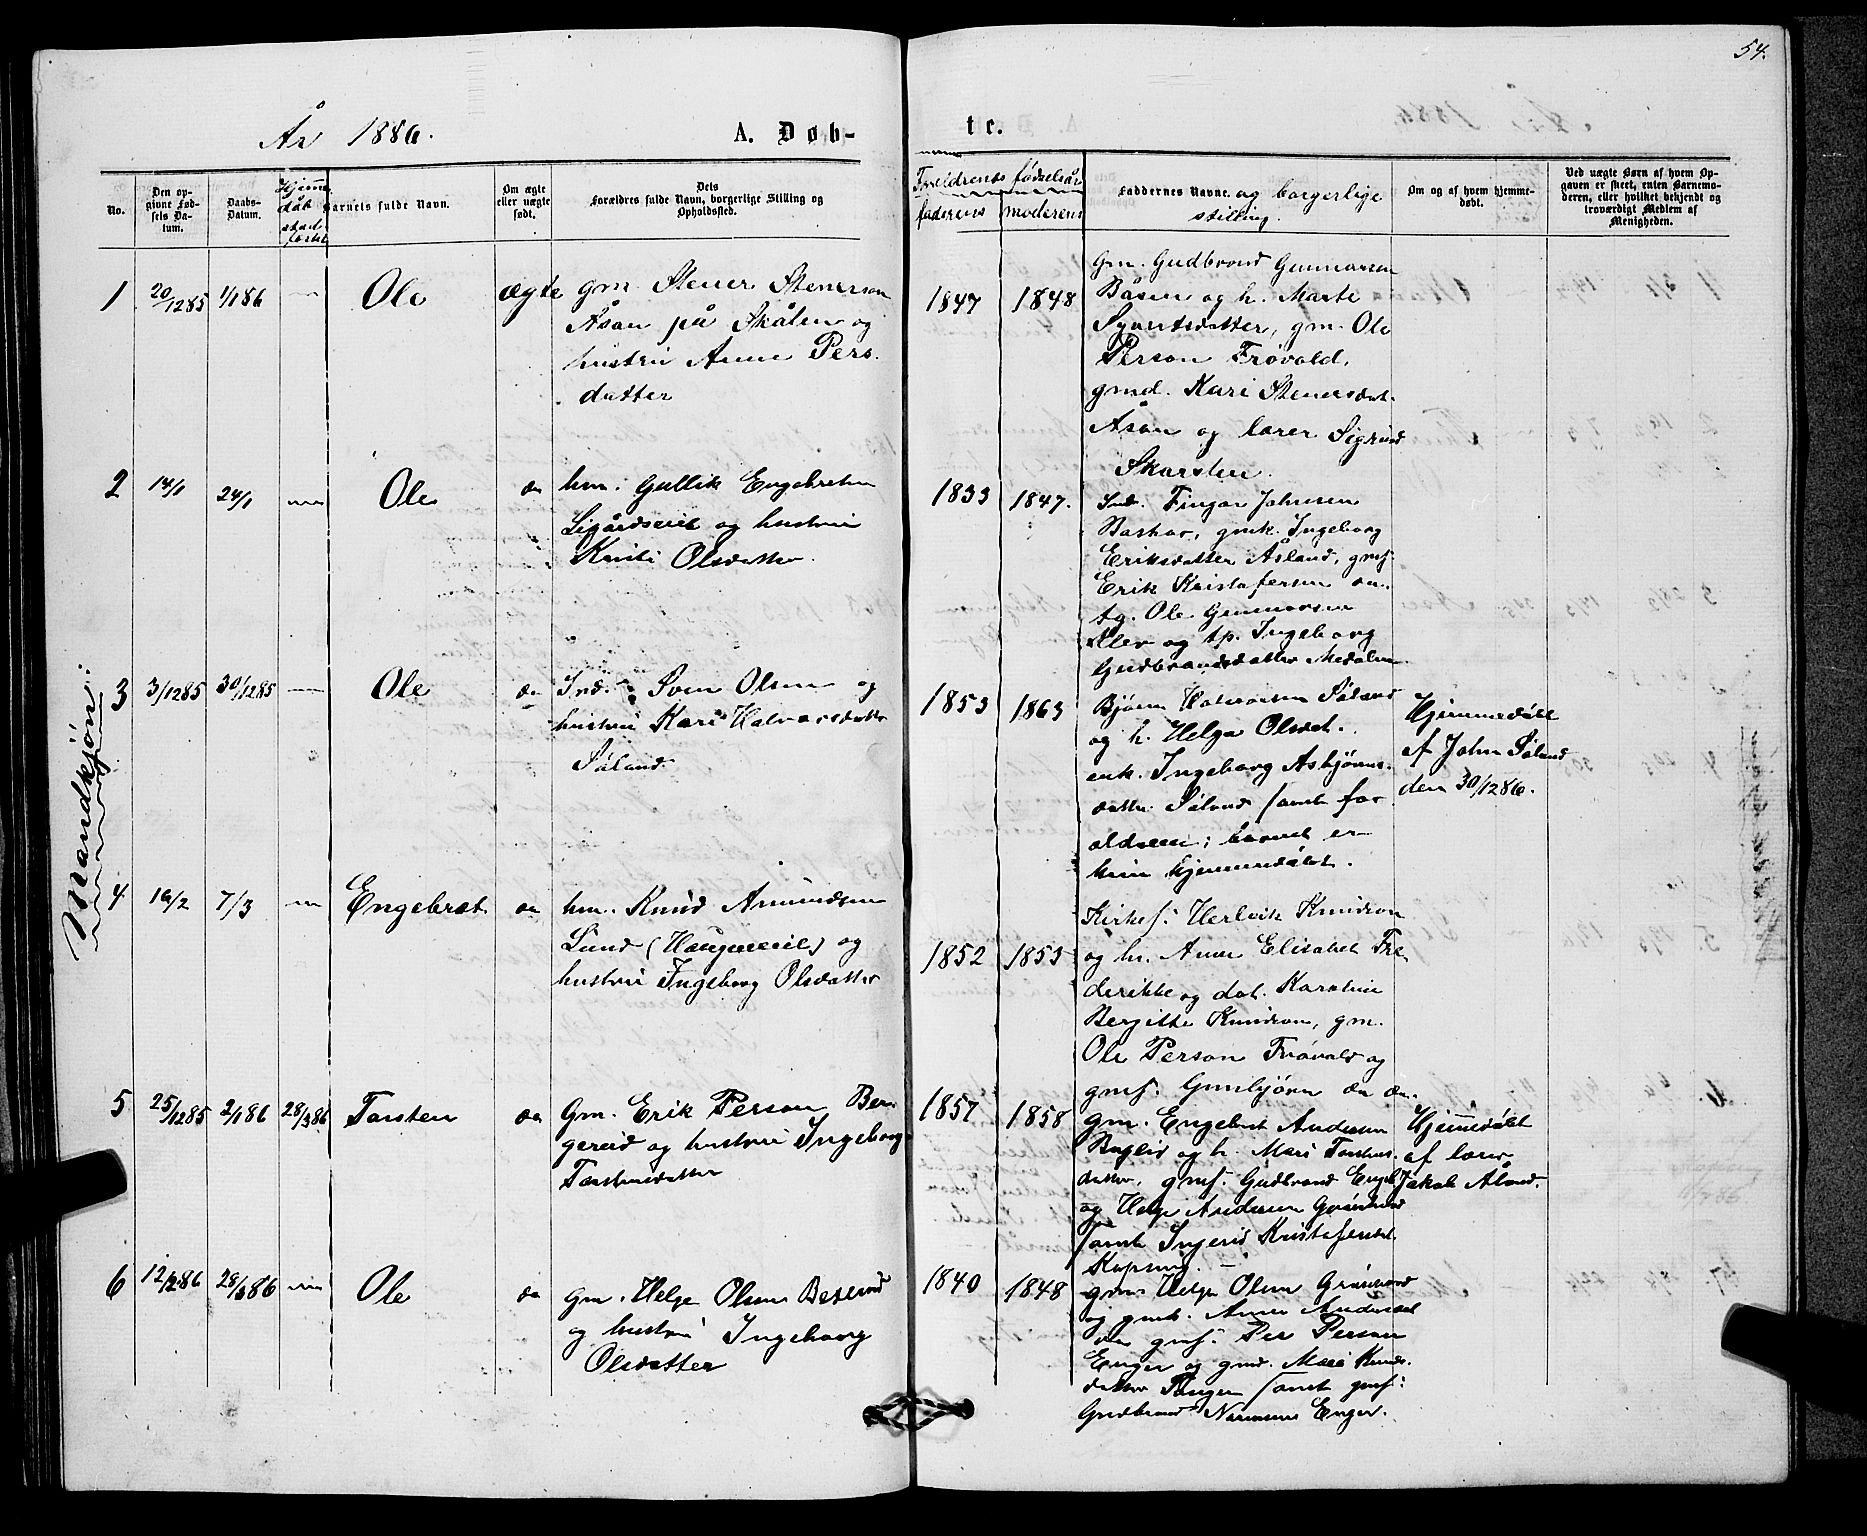 54.
År 1886.
A. Døb-
te.
No.
Den op-
givne Fød-
sels Da-
tum.
Daabs-
Datum.
Hjemme
dåb
stad-
fæstet
Barnets fulde Navn.
Om ægte
eller uægte
født.
Dets
Forældres fulde Navn, borgerlige Stilling og
Opholdssted.
Forældrenes fødselsår
faderens
moderens
Faddernes Navne. og borgerlige
stilling.
Om og af hvem hjemme-
døbt.
Ved uægte Børn af hvem Op-
gaven er skeet, enten Barnemo-
deren, eller hvilket bekjendt og
troværdigt Medlem af
Menigheden.
Mandkjøn:
1
20/1285
1/186
Ole
ægte
gm. Stener Stenersen
Åsan på Skålen og
hustru Anne Pers
datter
1847
1848
Gm. Gudbrand Gunnarsen
Båsen og h. Marte
Syvertsdatter, gm. Ole
Person Frøvold,
gmd. Kari Stenersdat.
Åsan og lærer Sigurd
Skarsten.
2
14/1
24/1
Ole
do
hm. Gullik Engebretsen
og hustru
Olsdatter.
1833
1847.
Ind. Fingar Johnsen
gmk. Ingeborg
Eriksdatter Åsland, gmf.
Erik Kristofersen do.
tg. Ole Gunnarsen
og tp. Ingeborg
Gudbrandsdatter Medalen.
3
3/1285
30/1285
Ole
do
Ind. Sven Olsen og
hustru Kari Halvorsdatter
Søland.
1853
1863
Bjørn Halvorsen Søland
og h. Helga Olsdat.
enk. Ingeborg Asbjørns-
datter Søland samt for
ældrene; barnet er
kun hjemmedøbt.
Hjemmedøbt
af John Søland
den 30/1286.
4
16/2
7/3
Engebret
do
hm. Knud Amundsen
Lund (Haugseeie) og
hustru Ingeborg Olsdatter
1852
1853
Kirkes. Herlvik Knudson
og h. Anne Elisabet Fre
derikke og dat. Karoline
Bergitte Knudson, gm.
Ole Person Frøvold og
gmf. Gunbjørn do do.
5
25/1285
2/186
28/386
Torsten
do
Gm. Erik Person Ber-
gereid og hustru Ingeborg
Torstensdatter
1857
1858
gm. Engebret Andersen
Baglid og h. Mari Torstens
datter, gmf. Gudbrand Engeb.
og Helge Andersen
samt Ingerid Kristofersdat.
Hjemmedøbt
af lærer
Jakob Åland.
6
12/286
28/386
Ole
do
gm. Helge Olsen
og hustru Ingeborg
Olsdatter
1840
1848
gm. Helge Olsen
og gmk. Anne Andersdat
do gmf. Per Person
Enger og gmd. Mari Knuds.
datter samt gmf:
Gudbrand Enger.